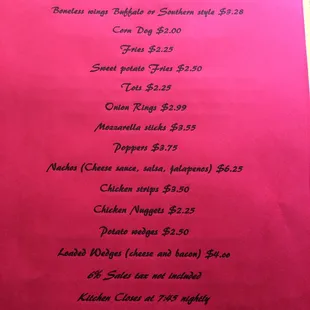 Boneless wings Buffalo or Southern style $3.28
Corn Dog $2.00
Fries $2.25
Sweet potato Fries $2.50
Tots $2.25
Onion Rings $2.99
Mozzarella sticks $3.55
Poppers $3.75
Nachos (Cheese sauce, salsa, jalapenos) $6.25
Chicken strips $3.50
Chicken Nuggets $2.25
Potato wedges $2.50
Loaded Wedges (cheese and bacon) $4.00
6% Sales tax not included
Kitchen Closes at 7:45 nightly